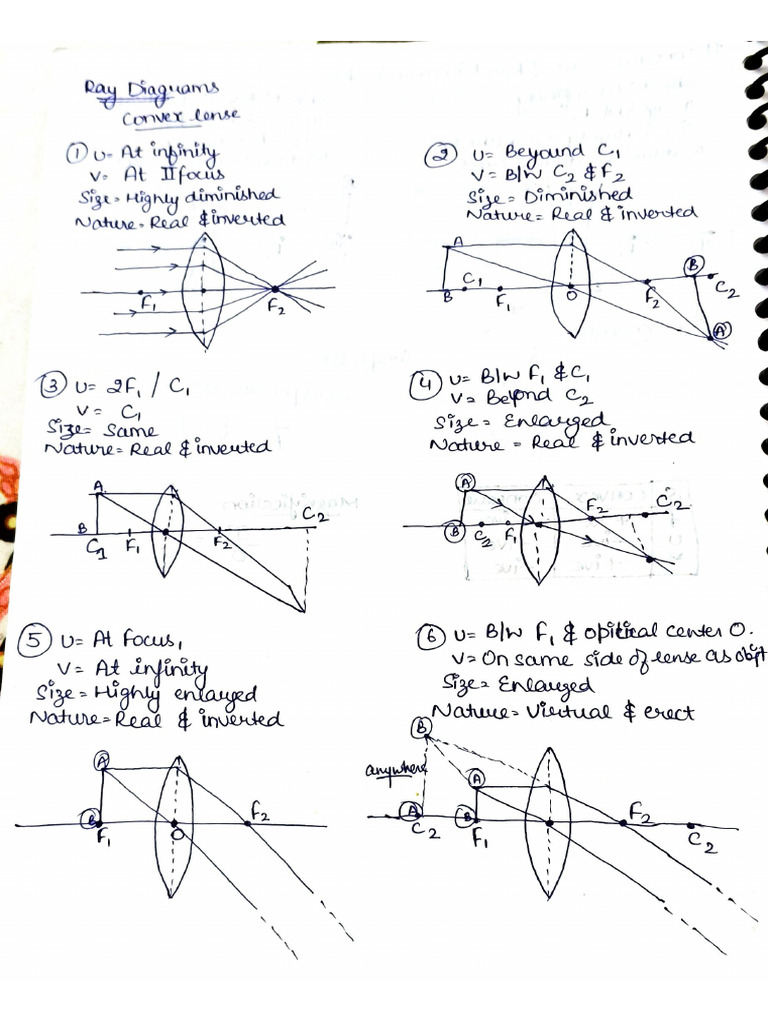 Ray Diagrams
Convex lense
① U= At infinity
V= At II focus
Size= Highly diminished
Nature= Real & inverted
F1
F2
② U= Beyound C1
V= B/W C2 & F2
Size= Diminished
Nature= Real & inverted
A
B
C1
F1
O
F2
B
C2
A'
③ U= 2F1 / C1
V= C1
Size= Same
Nature= Real & inverted
A
B
C1
F1
F2
C2
④ U= B/W F1 & C1
V= Beyond C2
Size= Enlarged
Nature = Real & inverted
A
B
C2
F1
F2
C2
⑤ U= At Focus1
V= At infinity
Size= Highly enlarged
Nature= Real & inverted
A
B
F1
O
F2
⑥ U= B/W F1 & opitical center O.
V= On same side of lense as objt
Size= Enlarged
Nature= Virtual & erect
B
anywhere
A
A
C2
B
F1
F2
C2